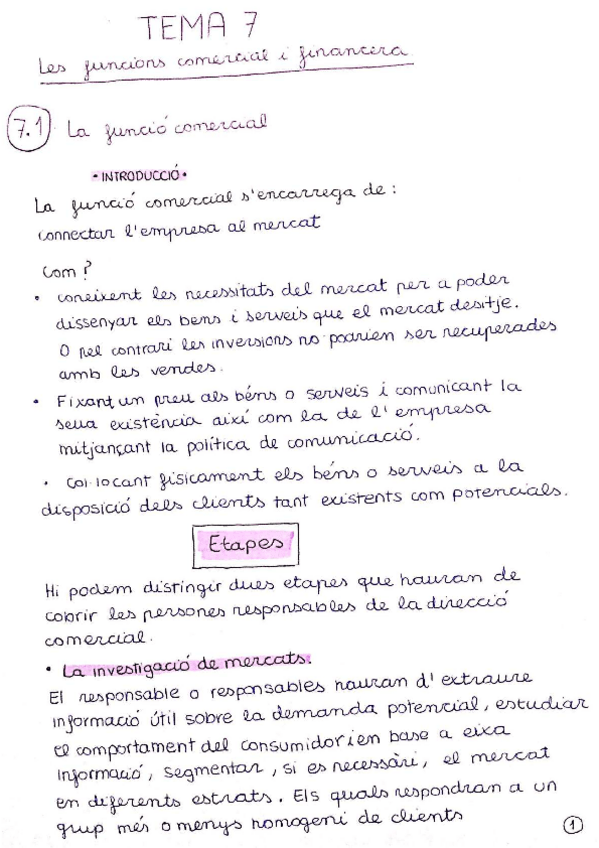 TEMA 7
Les funcions comercial i financera
7.1 La funció comercial
• INTRODUCCIÓ •
La funció comercial s'encarrega de :
connectar l'empresa al mercat
Com ?
• coneixent les necessitats del mercat per a poder
dissenyar els bens i serveis que el mercat desitje.
O pel contrari les inversions no podrien ser recuperades
amb les vendes.
• Fixant un preu als béns o serveis i comunicant la
seua existència així com la de l'empresa
mitjançant la política de comunicació.
• Col·locant físicament els béns o serveis a la
disposició dels clients tant existents com potencials.
Etapes
Hi podem distingir dues etapes que hauran de
cobrir les persones responsables de la direcció
comercial.
• La investigació de mercats.
El responsable o responsables hauran d'extraure
informació útil sobre la demanda potencial, estudiar
el comportament del consumidor i en base a eixa
informació, segmentar, si es necessàri, el mercat
en diferents estrats. Els quals respondran a un
grup més o menys homogeni de clients
1